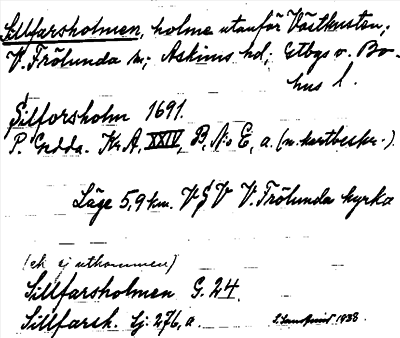 Sillfarsholmen, holme utanför Västkusten;
V. Frölunda sn; Askims hd; Gtbgs o. Bo-
hus l.
Silforsholm 1691.
P. Gedda. Kr.A. XXIV, B, N:o E, a. (m. kartbeskr.).
Läge 5,9 km. V § V V. Frölunda kyrka
(ek. ej utkommen)
Sillfarsholmen G. 24.
Sillfarsh. Sj. 276, a. 1938.